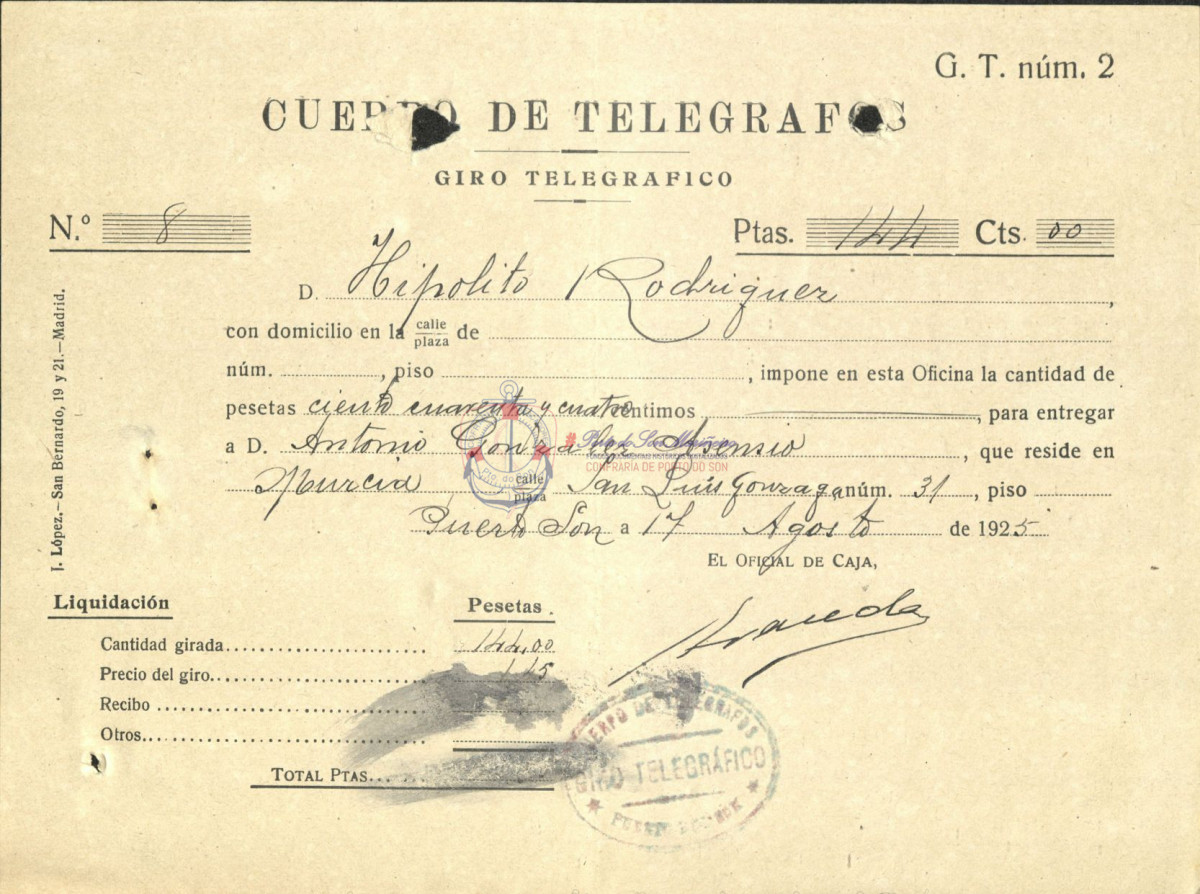 G. T. núm. 2
CUERPO DE TELEGRAFOS
GIRO TELEGRAFICO
N.º 8 Ptas. 144 Cts. 00
D. Hipolito Rodriguez
con domicilio en la calle/plaza de
núm. , piso , impone en esta Oficina la cantidad de
pesetas ciento cuarenta y cuatro céntimos , para entregar
a D. Antonio Gonzalez Asensio , que reside en
Murcia calle/plaza San Luis Gonzaga núm. 31 , piso
Puerto Son a 17 Agosto de 1925
EL OFICIAL DE CAJA,
Liquidación Pesetas.
Cantidad girada 144,00
Precio del giro 1,15
Recibo
Otros
TOTAL PTAS.
CUERPO DE TELEGRAFOS
GIRO TELEGRÁFICO
J. López.—San Bernardo, 19 y 21.—Madrid.
CONFRARÍA DE PORTO DO SON